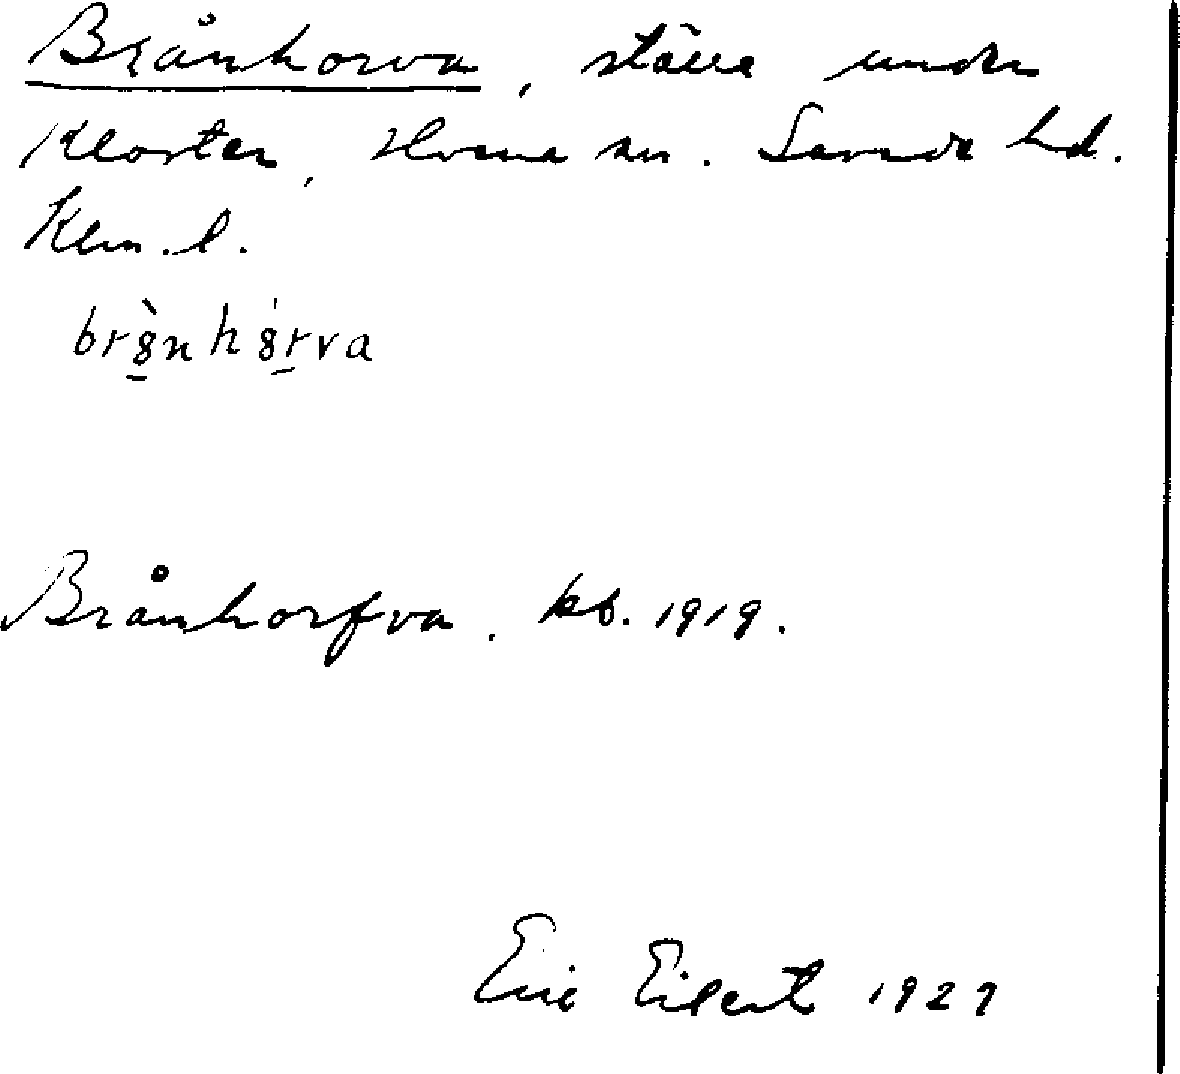 Brånhorva, ställe under
Kloster, Husie sn. Sevede hd.
Klm. l.
brånhårva
Brånhorfva. kb. 1919.
Eric Eilert 1927